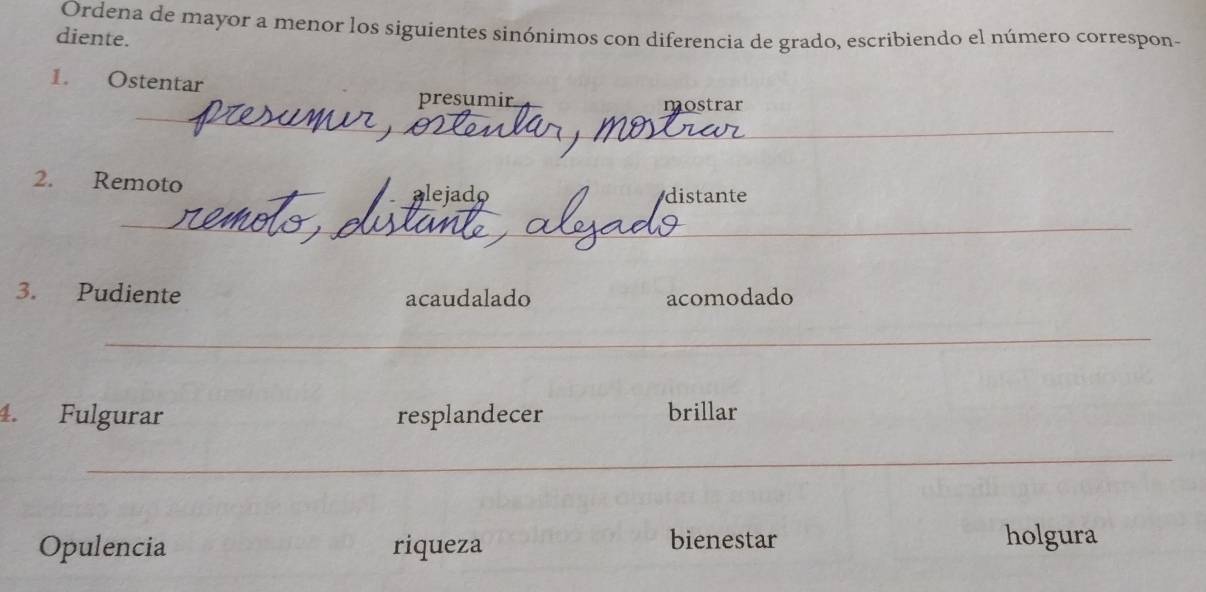 Ordena de mayor a menor los siguientes sinónimos con diferencia de grado, escribiendo el número correspon-
diente.
1. Ostentar presumir mostrar
presumir, ostentar, mostrar
2. Remoto alejado distante
remoto, distante, alejado
3. Pudiente acaudalado acomodado
4. Fulgurar resplandecer brillar
Opulencia riqueza bienestar holgura